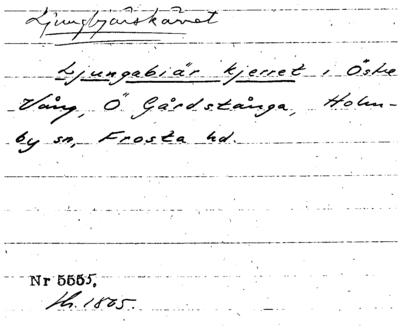 Ljungbjärskärret
Ljungabiär kjerret i Östre
Vång, Ö Gårdstånga, Holm-
by sn, Frosta hd.
Nr 5555.
1805.